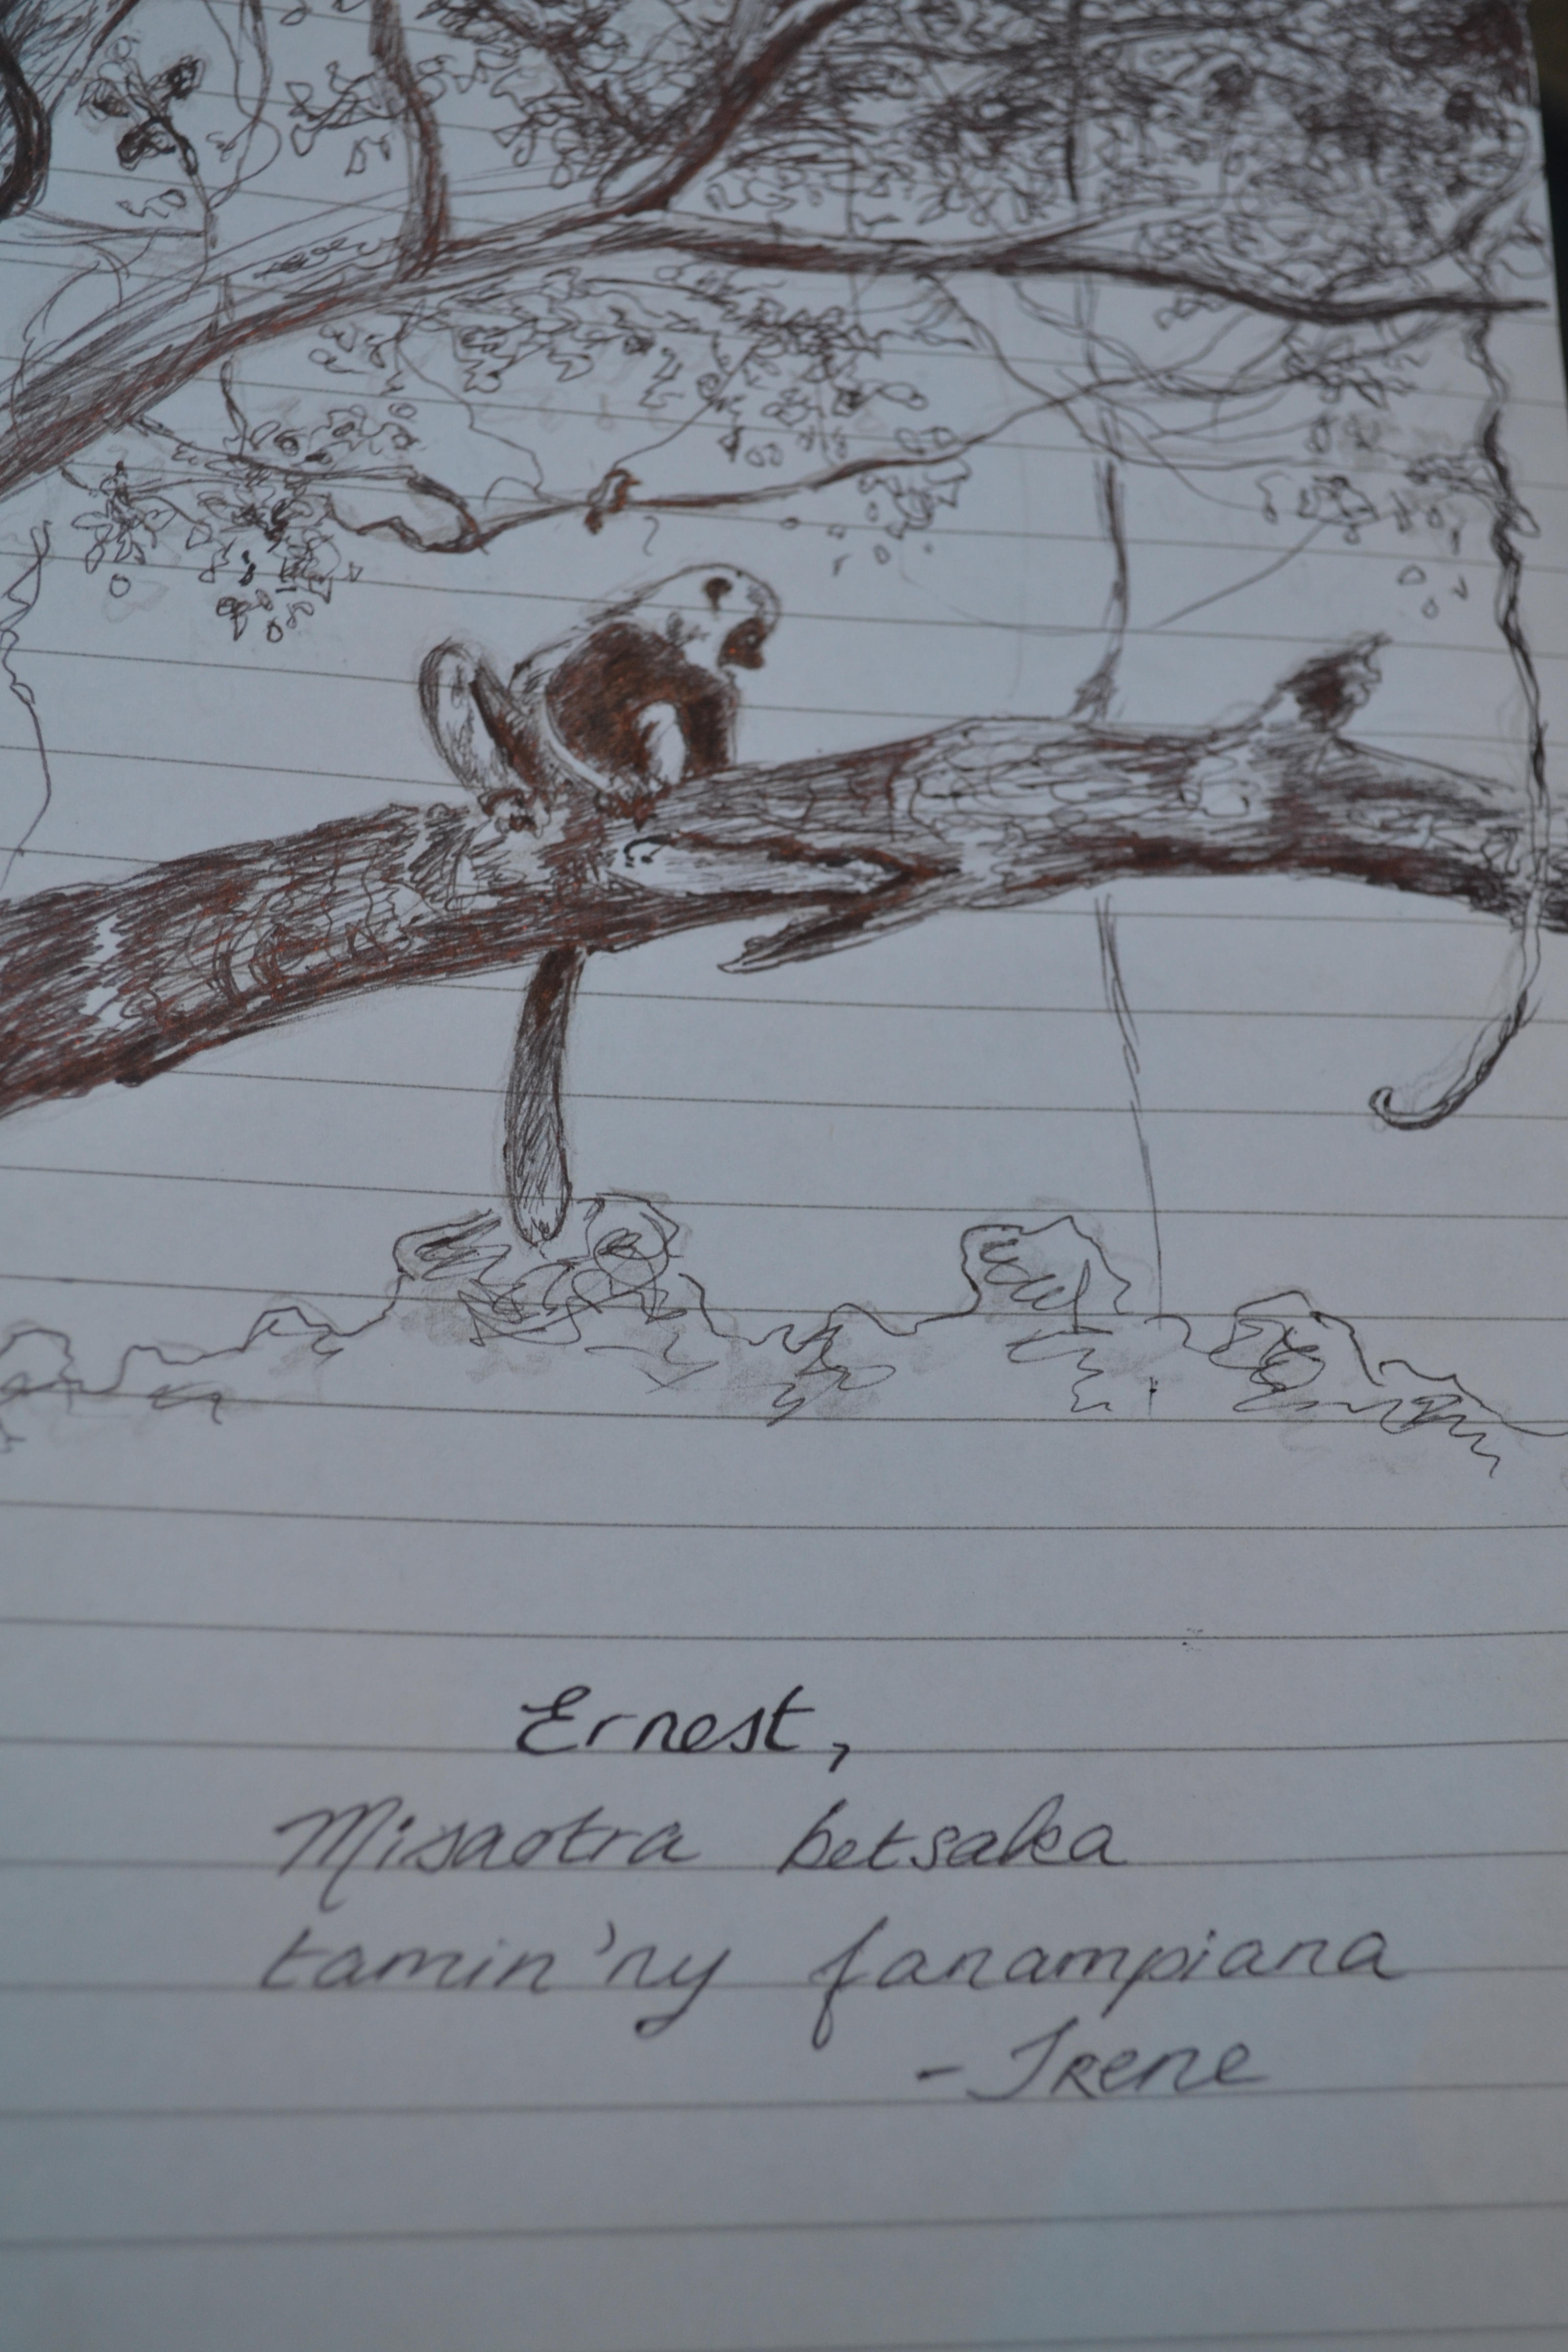 Ernest,
Misaotra betsaka
tamin'ny fanampiana
- Irene